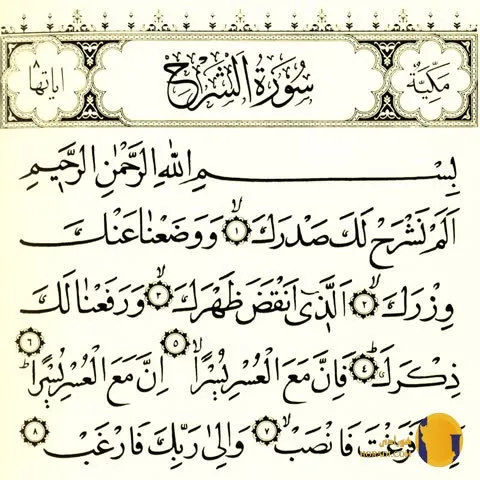 مَكِّيَّةٌ سُورَةُ الشَّرْحِ اٰيَاتُهَا ٨
بِسْمِ اللّٰهِ الرَّحْمٰنِ الرَّحِيمِ
اَلَمْ نَشْرَحْ لَكَ صَدْرَكَۙ ﴿١﴾ وَوَضَعْنَا عَنْكَ
وِزْرَكَۙ ﴿٢﴾ اَلَّذٖٓى اَنْقَضَ ظَهْرَكَۙ ﴿٣﴾ وَرَفَعْنَا لَكَ
ذِكْرَكَؕ ﴿٤﴾ فَاِنَّ مَعَ الْعُسْرِ يُسْرًاۙ ﴿٥﴾ اِنَّ مَعَ الْعُسْرِ يُسْرًاؕ ﴿٦﴾
فَرَغْتَ فَانْصَبْۙ ﴿٧﴾ وَاِلٰى رَبِّكَ فَارْغَبْ ﴿٨﴾